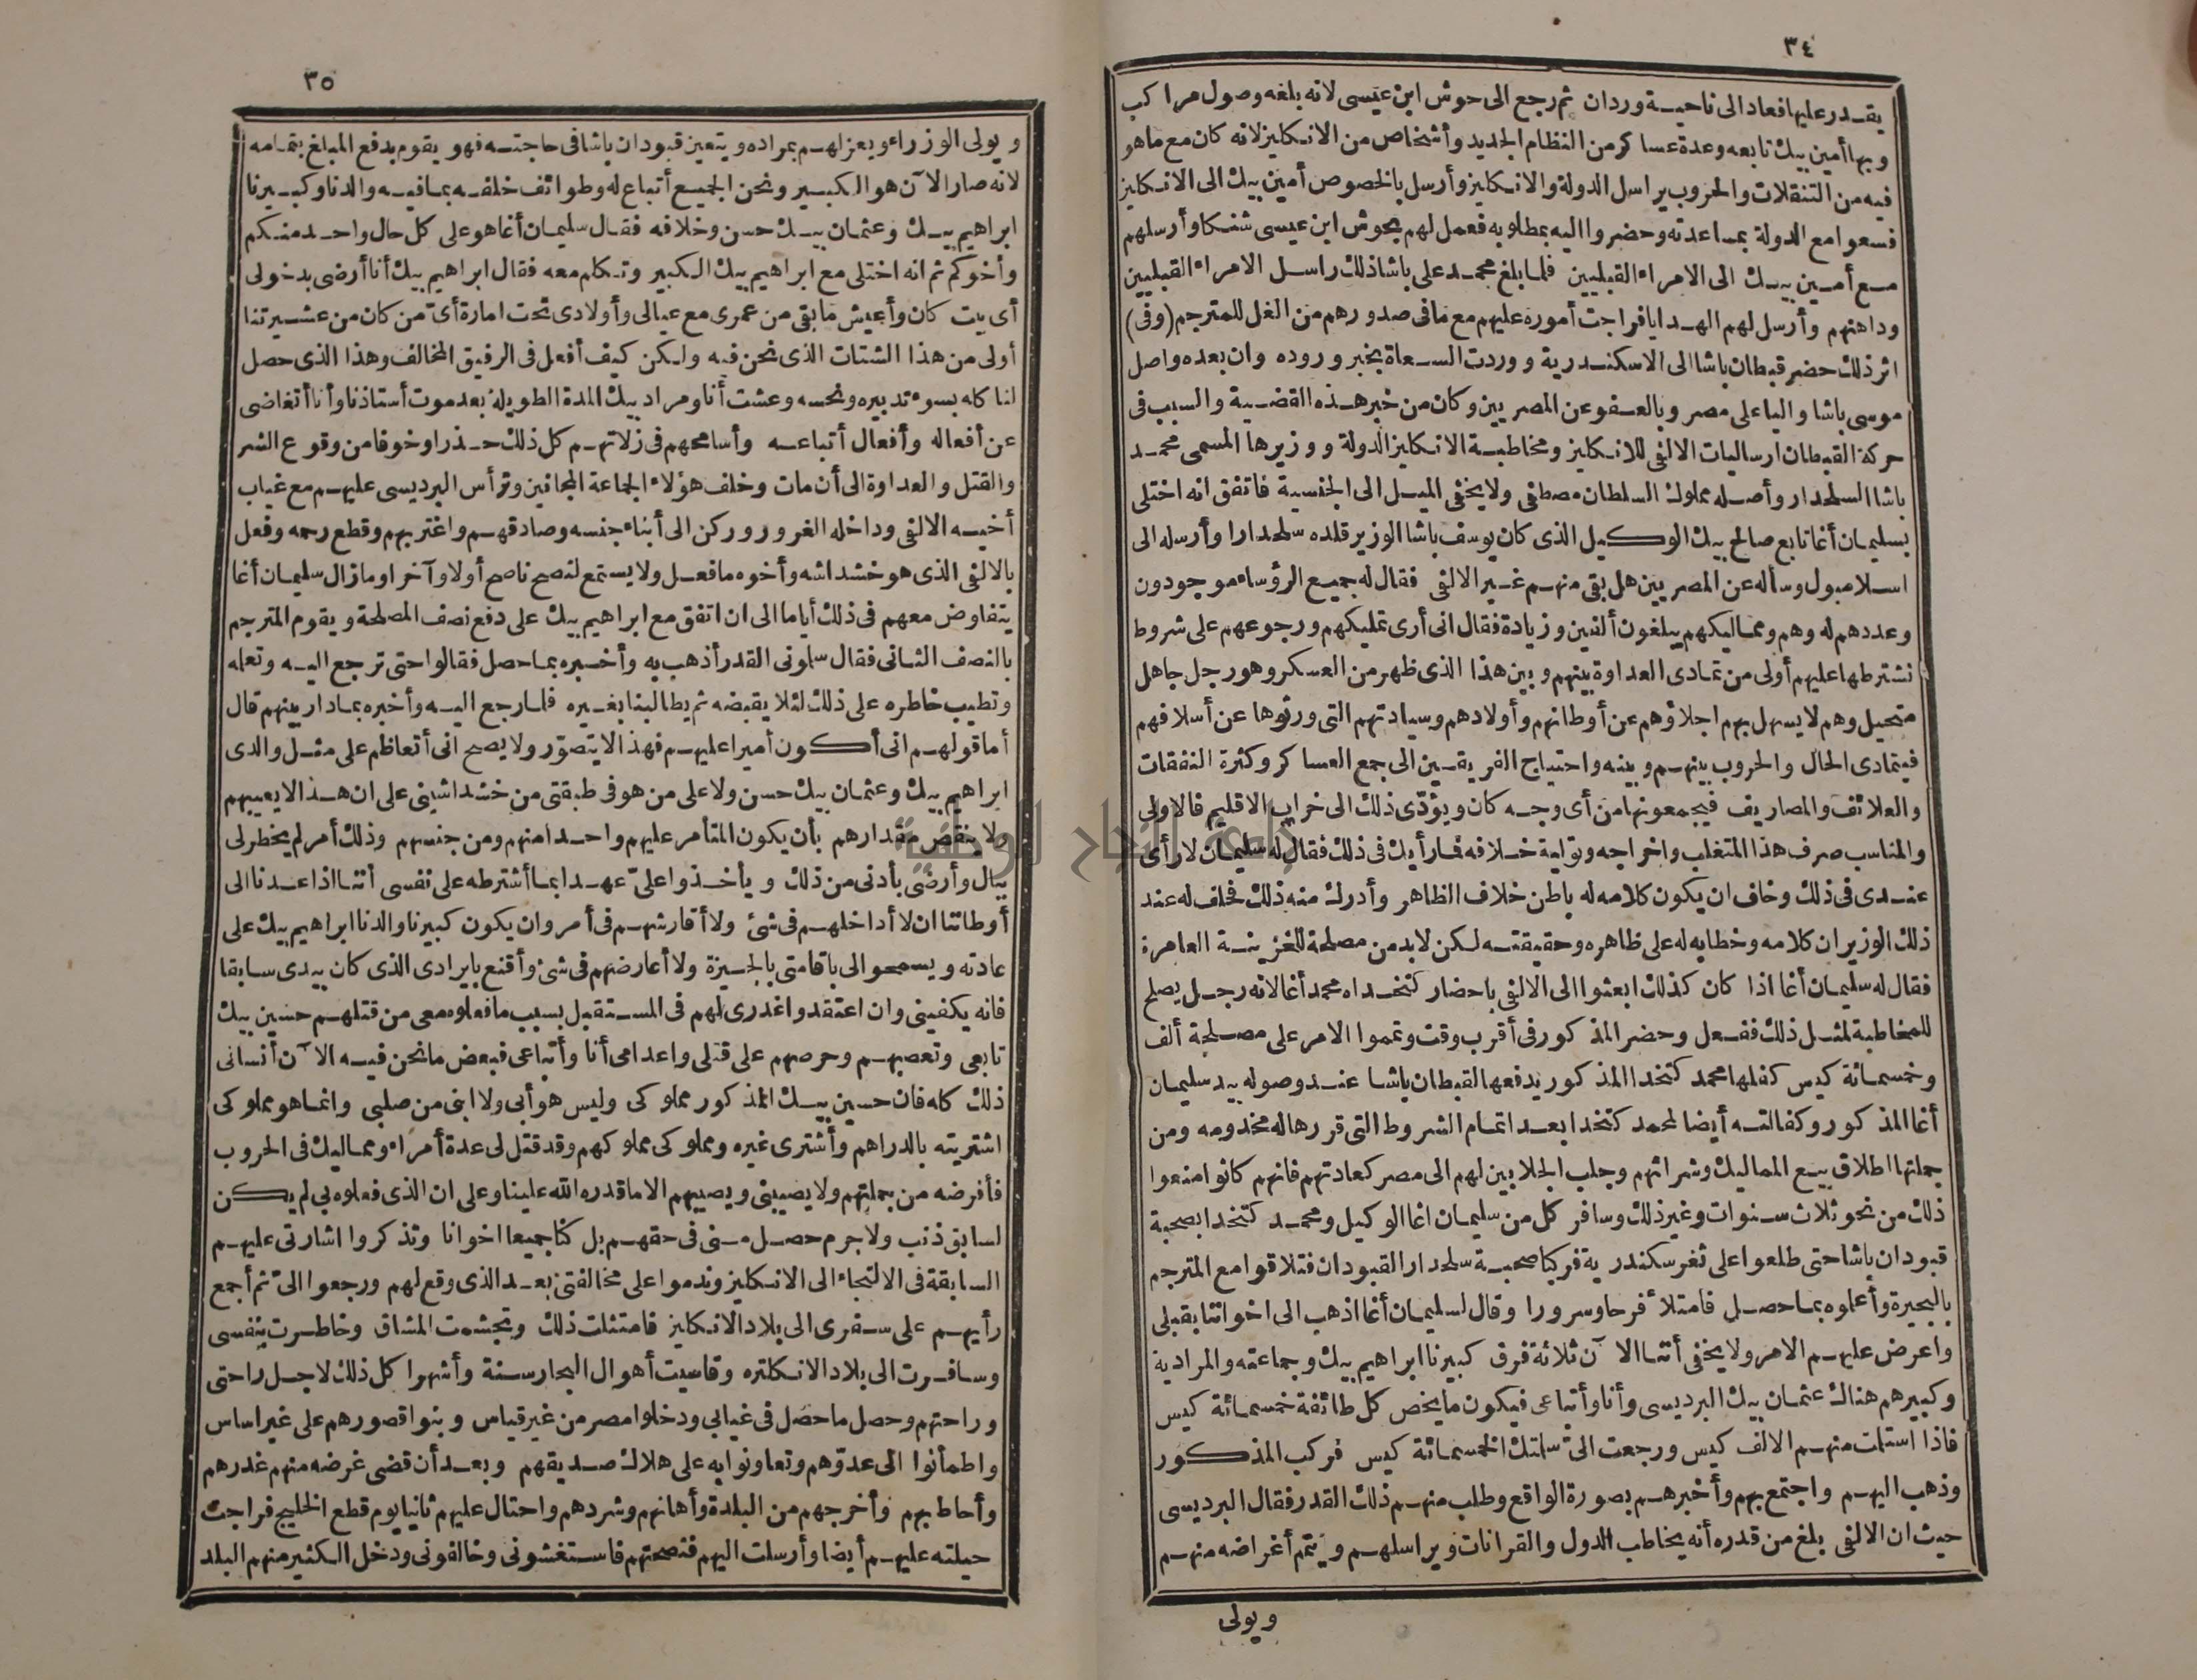 ٣٤
يقدر عليها فعاد الى ناحية وردان ثم رجع الى حوش ابن عيسى لانه بلغه وصول مراكب
وبها أمين بيك تابعه وعدة عساكر من النظام الجديد وأشخاص من الانكليز لانه كان مع ما هو
فيه من التنقلات والحروب يراسل الدولة والانكليز وأرسل بالخصوص أمين بيك الى الانكليز
فسعوا مع الدولة بمساعدته وحضروا اليه بمطلوبه فعمل لهم بحوش ابن عيسى شنكا وأرسلهم
مع أمين بيك الى الامراء القبليين فلما بلغ محمد على باشا ذلك راسل الامراء القبليين
وداهنهم وأرسل لهم الهدايا فراجت أموره عليهم مع ما فى صدورهم من الغل للمترجم (وفى)
اثر ذلك حضر قبطان باشا الى الاسكندرية ووردت السعاة بخبر وروده وان بعده واصل
موسى باشا واليا على مصر وبالعفو عن المصريين وكان من خبر هذه القضية والسبب فى
حركة القبطان ارساليات الالفى للانكليز ومخاطبة الانكليز الدولة ووزيرها المسمى محمد
باشا السلحدار وأصله مملوك السلطان مصطفى ولا يخفى الميل الى الجنسية فاتفق انه اختلى
بسليمان أغا تابع صالح بيك الوكيل الذى كان يوسف باشا الوزير قلده سلحدارا وأرسله الى
اسلامبول وسأله عن المصريين هل بقى منهم غير الالفى فقال له جميع الرؤساء موجودون
وعددهم له وهم ومماليكهم يبلغون ألفين وزيادة فقال انى أرى تمليكهم ورجوعهم على شروط
نشترطها عليهم أولى من تمادى العداوة بينهم وبين هذا الذى ظهر من العسكر وهو رجل جاهل
متحيل وهم لا يسهل بهم اجلاؤهم عن أوطانهم وأولادهم وسيادتهم التى ورثوها عن أسلافهم
فيتمادى الحال والحروب بينهم وبينه واحتياج الفريقين الى جمع العساكر وكثرة النفقات
والعلائف والمصاريف فيجمعونها من أى وجه كان ويؤدّى ذلك الى خراب الاقليم فالاولى
والمناسب صرف هذا المتغلب واخراجه وتولية خلافه فما رأيك فى ذلك فقال له سليمان لا رأى
عندى فى ذلك وخاف ان يكون كلامه له باطن خلاف الظاهر وأدرك منه ذلك فحلف له عند
ذلك الوزير ان كلامه وخطابه له على ظاهره وحقيقته لكن لا بد من مصلحة للخزينة العامرة
فقال له سليمان أغا اذا كان كذلك ابعثوا الى الالفى باحضار كتخداه محمد أغا لانه رجل يصلح
للمخاطبة لمثل ذلك ففعل وحضر المذكور فى أقرب وقت وتمموا الامر على مصلحة ألف
وخمسمائة كيس كفلها محمد كتخدا المذكور يدفعها القبطان باشا عند وصوله بيد سليمان
أغا المذكور وكفالته أيضا لمحمد كتخدا بعد اتمام الشروط التى قررها له مخدومه ومن
جملتها اطلاق بيع المماليك وشرائهم وجلب الجلابين لهم الى مصر كعادتهم فانهم كانوا منعوا
ذلك من نحو ثلاث سنوات وغير ذلك وسافر كل من سليمان اغا الوكيل ومحمد كتخدا بصحبة
قبودان باشا حتى طلعوا على ثغر سكندرية فركبا صحبة سلحدار القبودان فتلاقوا مع المترجم
بالبحيرة وأعلموه بما حصل فامتلأ فرحا وسرورا وقال لسليمان أغا اذهب الى اخواتنا بقبلى
واعرض عليهم الامر ولا يخفى أننا الآن ثلاثة فرق كبيرنا ابراهيم بيك وجماعته والمرادية
وكبيرهم هناك عثمان بيك البرديسى وأنا وأتباعى فيكون ما يخص كل طائفة خمسمائة كيس
فاذا استلمت منهم الالف كيس ورجعت الىّ سلمتك الخمسمائة كيس فركب المذكور
وذهب اليهم واجتمع بهم وأخبرهم بصورة الواقع وطلب منهم ذلك القدر فقال البرديسى
حيث ان الالفى بلغ من قدره أنه يخاطب الدول والقرانات ويراسلهم ويتمم أغراضه منهم
ويولى
٣٥
ويولى الوزراء ويعزلهم بمراده ويتعين قبودان باشا فى حاجته فهو يقوم بدفع المبلغ بتمامه
لانه صار الآن هو الكبير ونحن الجميع أتباع له وطوائف خلفه بما فيه والدنا وكبيرنا
ابراهيم بيك وعثمان بيك حسن وخلافه فقال سليمان أغا هو على كل حال واحد منكم
وأخوكم ثم انه اختلى مع ابراهيم بيك الكبير وتكلم معه فقال ابراهيم بيك أنا أرضى بدخولى
أى بيت كان وأعيش ما بقى من عمرى مع عيالى وأولادى تحت امارة أىّ من كان من عشيرتنا
أولى من هذا الشتات الذى نحن فيه ولكن كيف أفعل فى الرفيق المخالف وهذا الذى حصل
لنا كله بسوء تدبيره ونحسه وعشت أنا ومراد بيك المدة الطويلة بعد موت أستاذنا وأنا أتغاضى
عن أفعاله وأفعال أتباعه وأسامحهم فى زلاتهم كل ذلك حذرا وخوفا من وقوع الشر
والقتل والعداوة الى أن مات وخلف هؤلاء الجماعة المجانين وترأس البرديسى عليهم مع غياب
أخيه الالفى وداخله الغرور وركن الى أبناء جنسه وصادقهم واغتر بهم وقطع رحمه وفعل
بالالفى الذى هو خشداشه وأخوه ما فعل ولا يستمع لنصح ناصح أولا وآخرا وما زال سليمان أغا
يتفاوض معهم فى ذلك أياما الى ان اتفق مع ابراهيم بيك على دفع نصف المصلحة ويقوم المترجم
بالنصف الثانى فقال سلونى القدر أذهب به وأخبره بما حصل فقالوا حتى ترجع اليه وتعلمه
وتطيب خاطره على ذلك لئلا يقبضه ثم يطالبنا بغيره فلما رجع اليه وأخبره بما دار بينهم قال
أما قولهم انى أكون أميرا عليهم فهذا لا يتصوّر ولا يصح انى أتعاظم على مثل والدى
ابراهيم بيك وعثمان بيك حسن ولا على من هو فى طبقتى من خشداشينى على ان هذا لا يعيبهم
ولا ينقص مقدارهم بأن يكون المتأمر عليهم واحدا منهم ومن جنسهم وذلك أمر لم يخطر لى
ببال وأرضى بأدنى من ذلك ويأخذوا علىّ عهدا بما أشترطه على نفسى أننا اذا عدنا الى
أوطاننا ان لا أداخلهم فى شئ ولا أقارشهم فى أمر وان يكون كبيرنا والدنا ابراهيم بيك على
عادته ويسمحوا لى باقامتى بالجيزة ولا أعارضهم فى شئ وأقنع بايرادى الذى كان بيدى سابقا
فانه يكفينى وان اعتقدوا غدرى لهم فى المستقبل بسبب ما فعلوه معى من قتلهم حسين بيك
تابعى وتعصبهم وحرصهم على قتلى واعدامى أنا وأتباعى فبعض ما نحن فيه الآن أنسانى
ذلك كله فان حسين بيك المذكور مملوكى وليس هو أبى ولا ابنى من صلبى وانما هو مملوكى
اشتريته بالدراهم وأشترى غيره ومملوكى مملوكهم وقد قتل لى عدة أمراء ومماليك فى الحروب
فأفرضه من جملتهم ولا يصيبنى ويصيبهم الا ما قدره الله علينا وعلى ان الذى فعلوه بى لم يكن
لسابق ذنب ولا جرم حصل منى فى حقهم بل كنا جميعا اخوانا وتذكروا اشارتى عليهم
السابقة فى الالتجاء الى الانكليز وندموا على مخالفتى بعد الذى وقع لهم ورجعوا الىّ ثم أجمع
رأيهم على سفرى الى بلاد الانكليز فامتثلت ذلك وتجشمت المشاق وخاطرت بنفسى
وسافرت الى بلاد الانكلتره وقاسيت أهوال البحار سنة وأشهرا كل ذلك لاجل راحتى
وراحتهم وحصل ما حصل فى غيابى ودخلوا مصر من غير قياس وبنوا قصورهم على غير اساس
واطمأنوا الى عدوّهم وتعاونوا به على هلاك صديقهم وبعد أن قضى غرضه منهم غدرهم
وأحاط بهم وأخرجهم من البلدة وأهانهم وشردهم واحتال عليهم ثانيا يوم قطع الخليج فراجت
حيلته عليهم أيضا وأرسلت اليهم فنصحتهم فاستغشونى وخالفونى ودخل الكثير منهم البلد
جامعة النجاح الوطنية